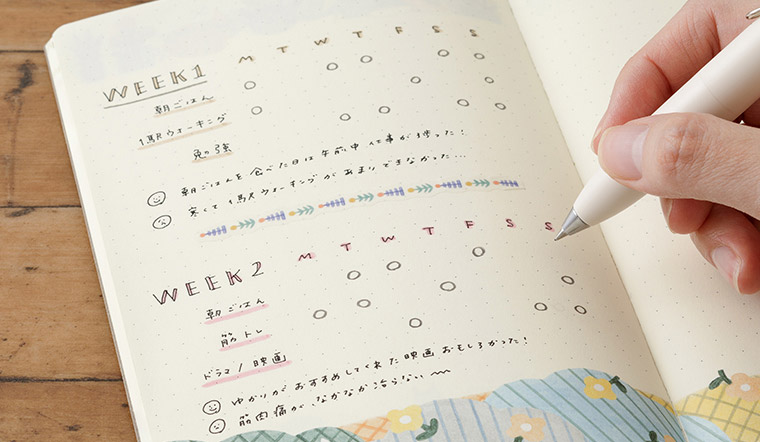 WEEK1 M T W T F S S
朝ごはん
1駅ウォーキング
勉強
朝ごはんを食べた日は午前中仕事が捗った!
寒くて1駅ウォーキングがあまりできなかった...
WEEK2 M T W T F S S
朝ごはん
筋トレ
ドラマ/映画
ゆかりがおすすめしてくれた映画おもしろかった!
筋肉痛がなかなか治らない〜